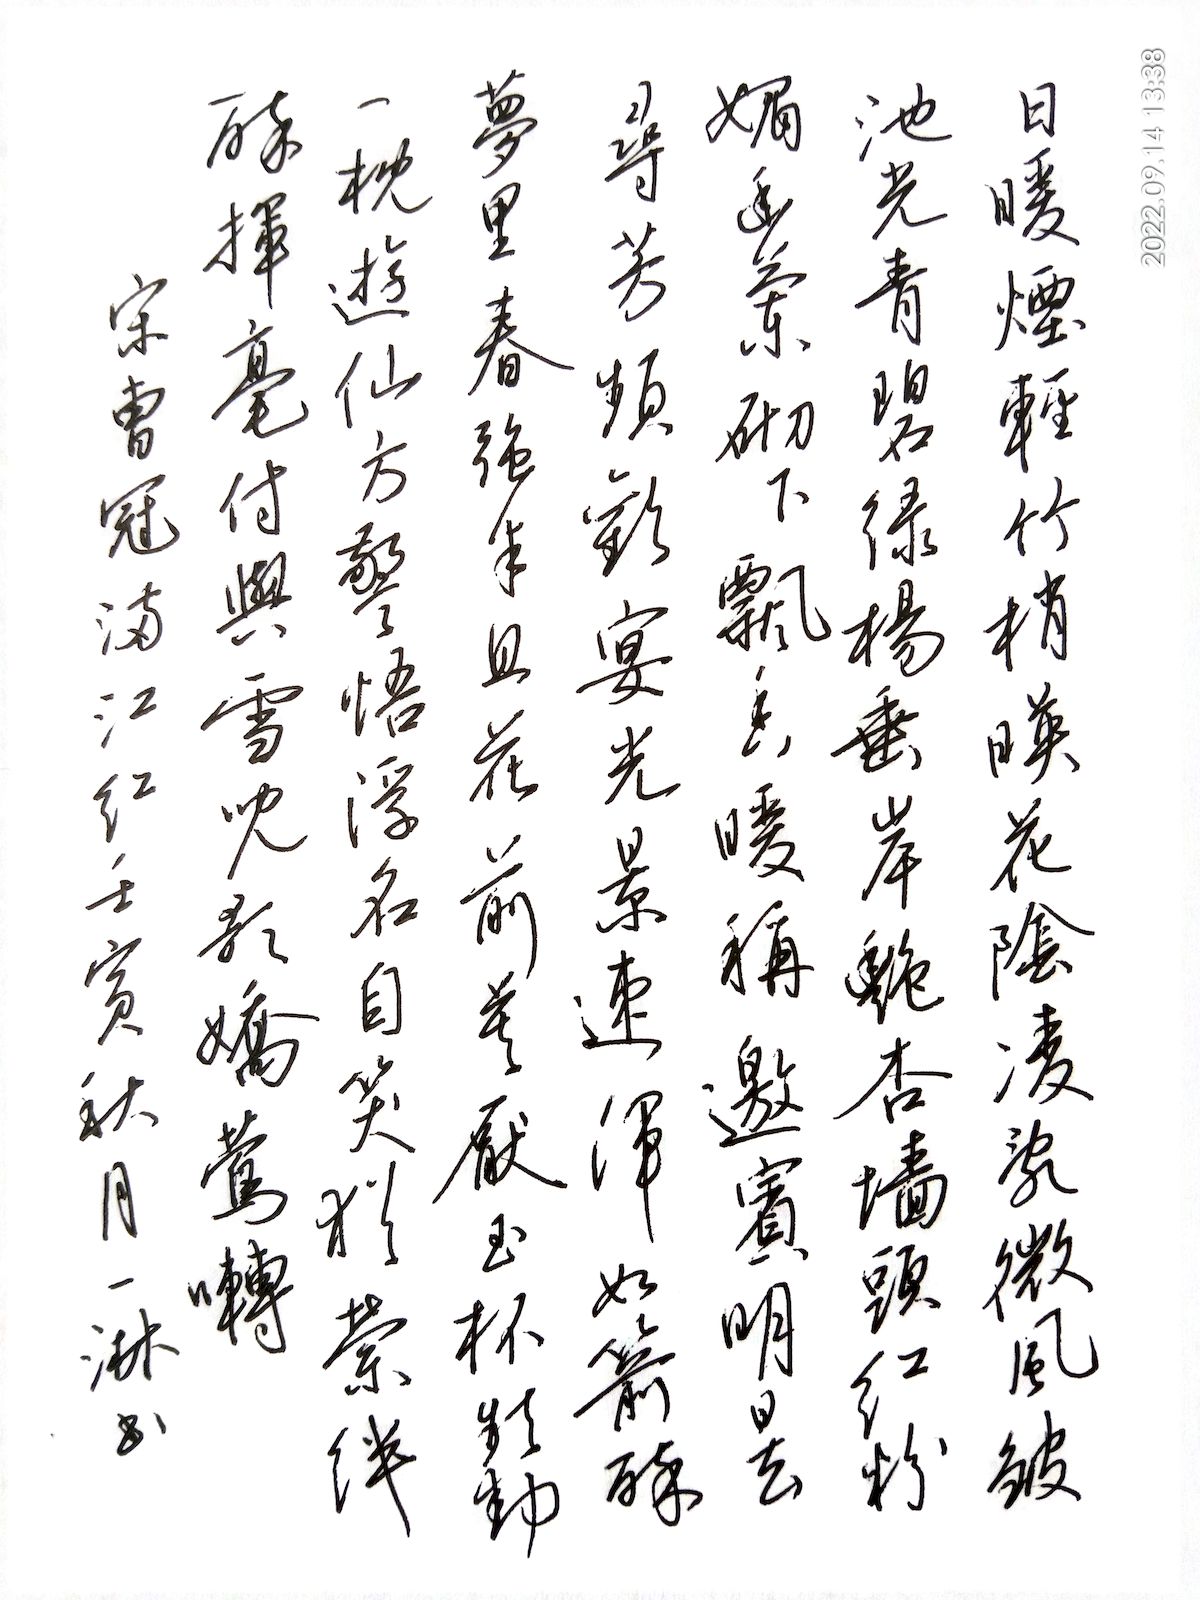 日暖煙輕竹梢暎花陰凌亂微風皱
池光青碧绿楊垂岸艷杏墙頭红粉
媚幽蘭砌下飄香暖稱邀賓明日去
尋芳頻歡宴光景速渾如箭醉
夢里春强半且花前莫厭玉杯頻勸
一枕遊仙方警悟浮名自笑猶萦绊
醉揮毫付與雪兒歌嬌莺囀
宋曹冠满江红壬寅秋月一淋书
2022.09.14 13:38